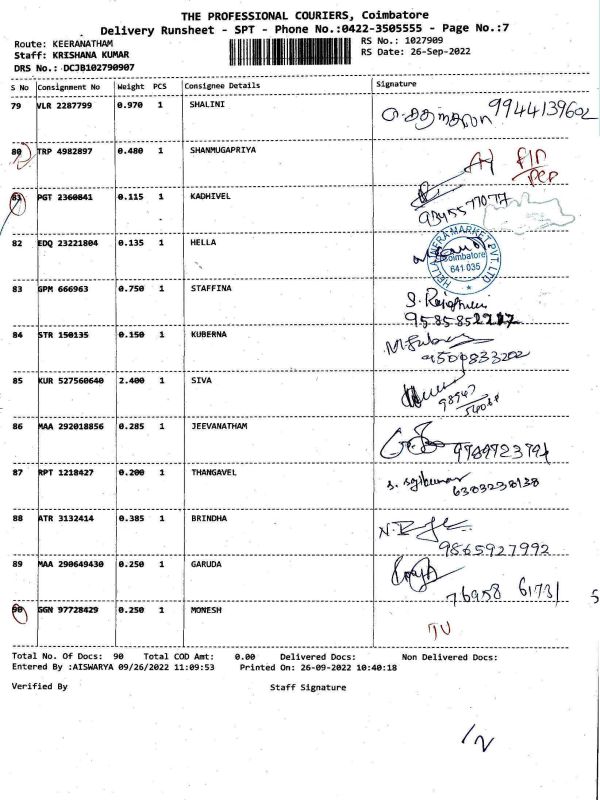 THE PROFESSIONAL COURIERS, Coimbatore
Delivery Runsheet - SPT - Phone No.:0422-3505555 - Page No.:7
Route: KEERANATHAM
RS No.: 1027909
Staff: KRISHANA KUMAR
RS Date: 26-Sep-2022
DRS No.: DCJB102790907
S No Consignment No Weight PCS Consignee Details Signature
79 VLR 2287799 0.970 1 SHALINI 9944139602
80 TRP 4982897 0.480 1 SHANMUGAPRIYA
81 PGT 2360841 0.115 1 KADHIVEL
82 EDQ 23221804 0.135 1 HELLA
HELLA INFRA MARKET PVT. LTD
Coimbatore
641 035
83 GPM 666963 0.750 1 STAFFINA
84 STR 150135 0.150 1 KUBERNA
9500833202
85 KUR 527560640 2.400 1 SIVA
86 MAA 292018856 0.285 1 JEEVANATHAM
9789723791
87 RPT 1218427 0.200 1 THANGAVEL
6383230138
88 ATR 3132414 0.385 1 BRINDHA
9865927992
89 MAA 290649430 0.250 1 GARUDA
76958 61731
90 GGN 97728429 0.250 1 MONESH
Total No. Of Docs: 90 Total COD Amt: 0.00 Delivered Docs: Non Delivered Docs:
Entered By :AISWARYA 09/26/2022 11:09:53 Printed On: 26-09-2022 10:40:18
Verified By Staff Signature